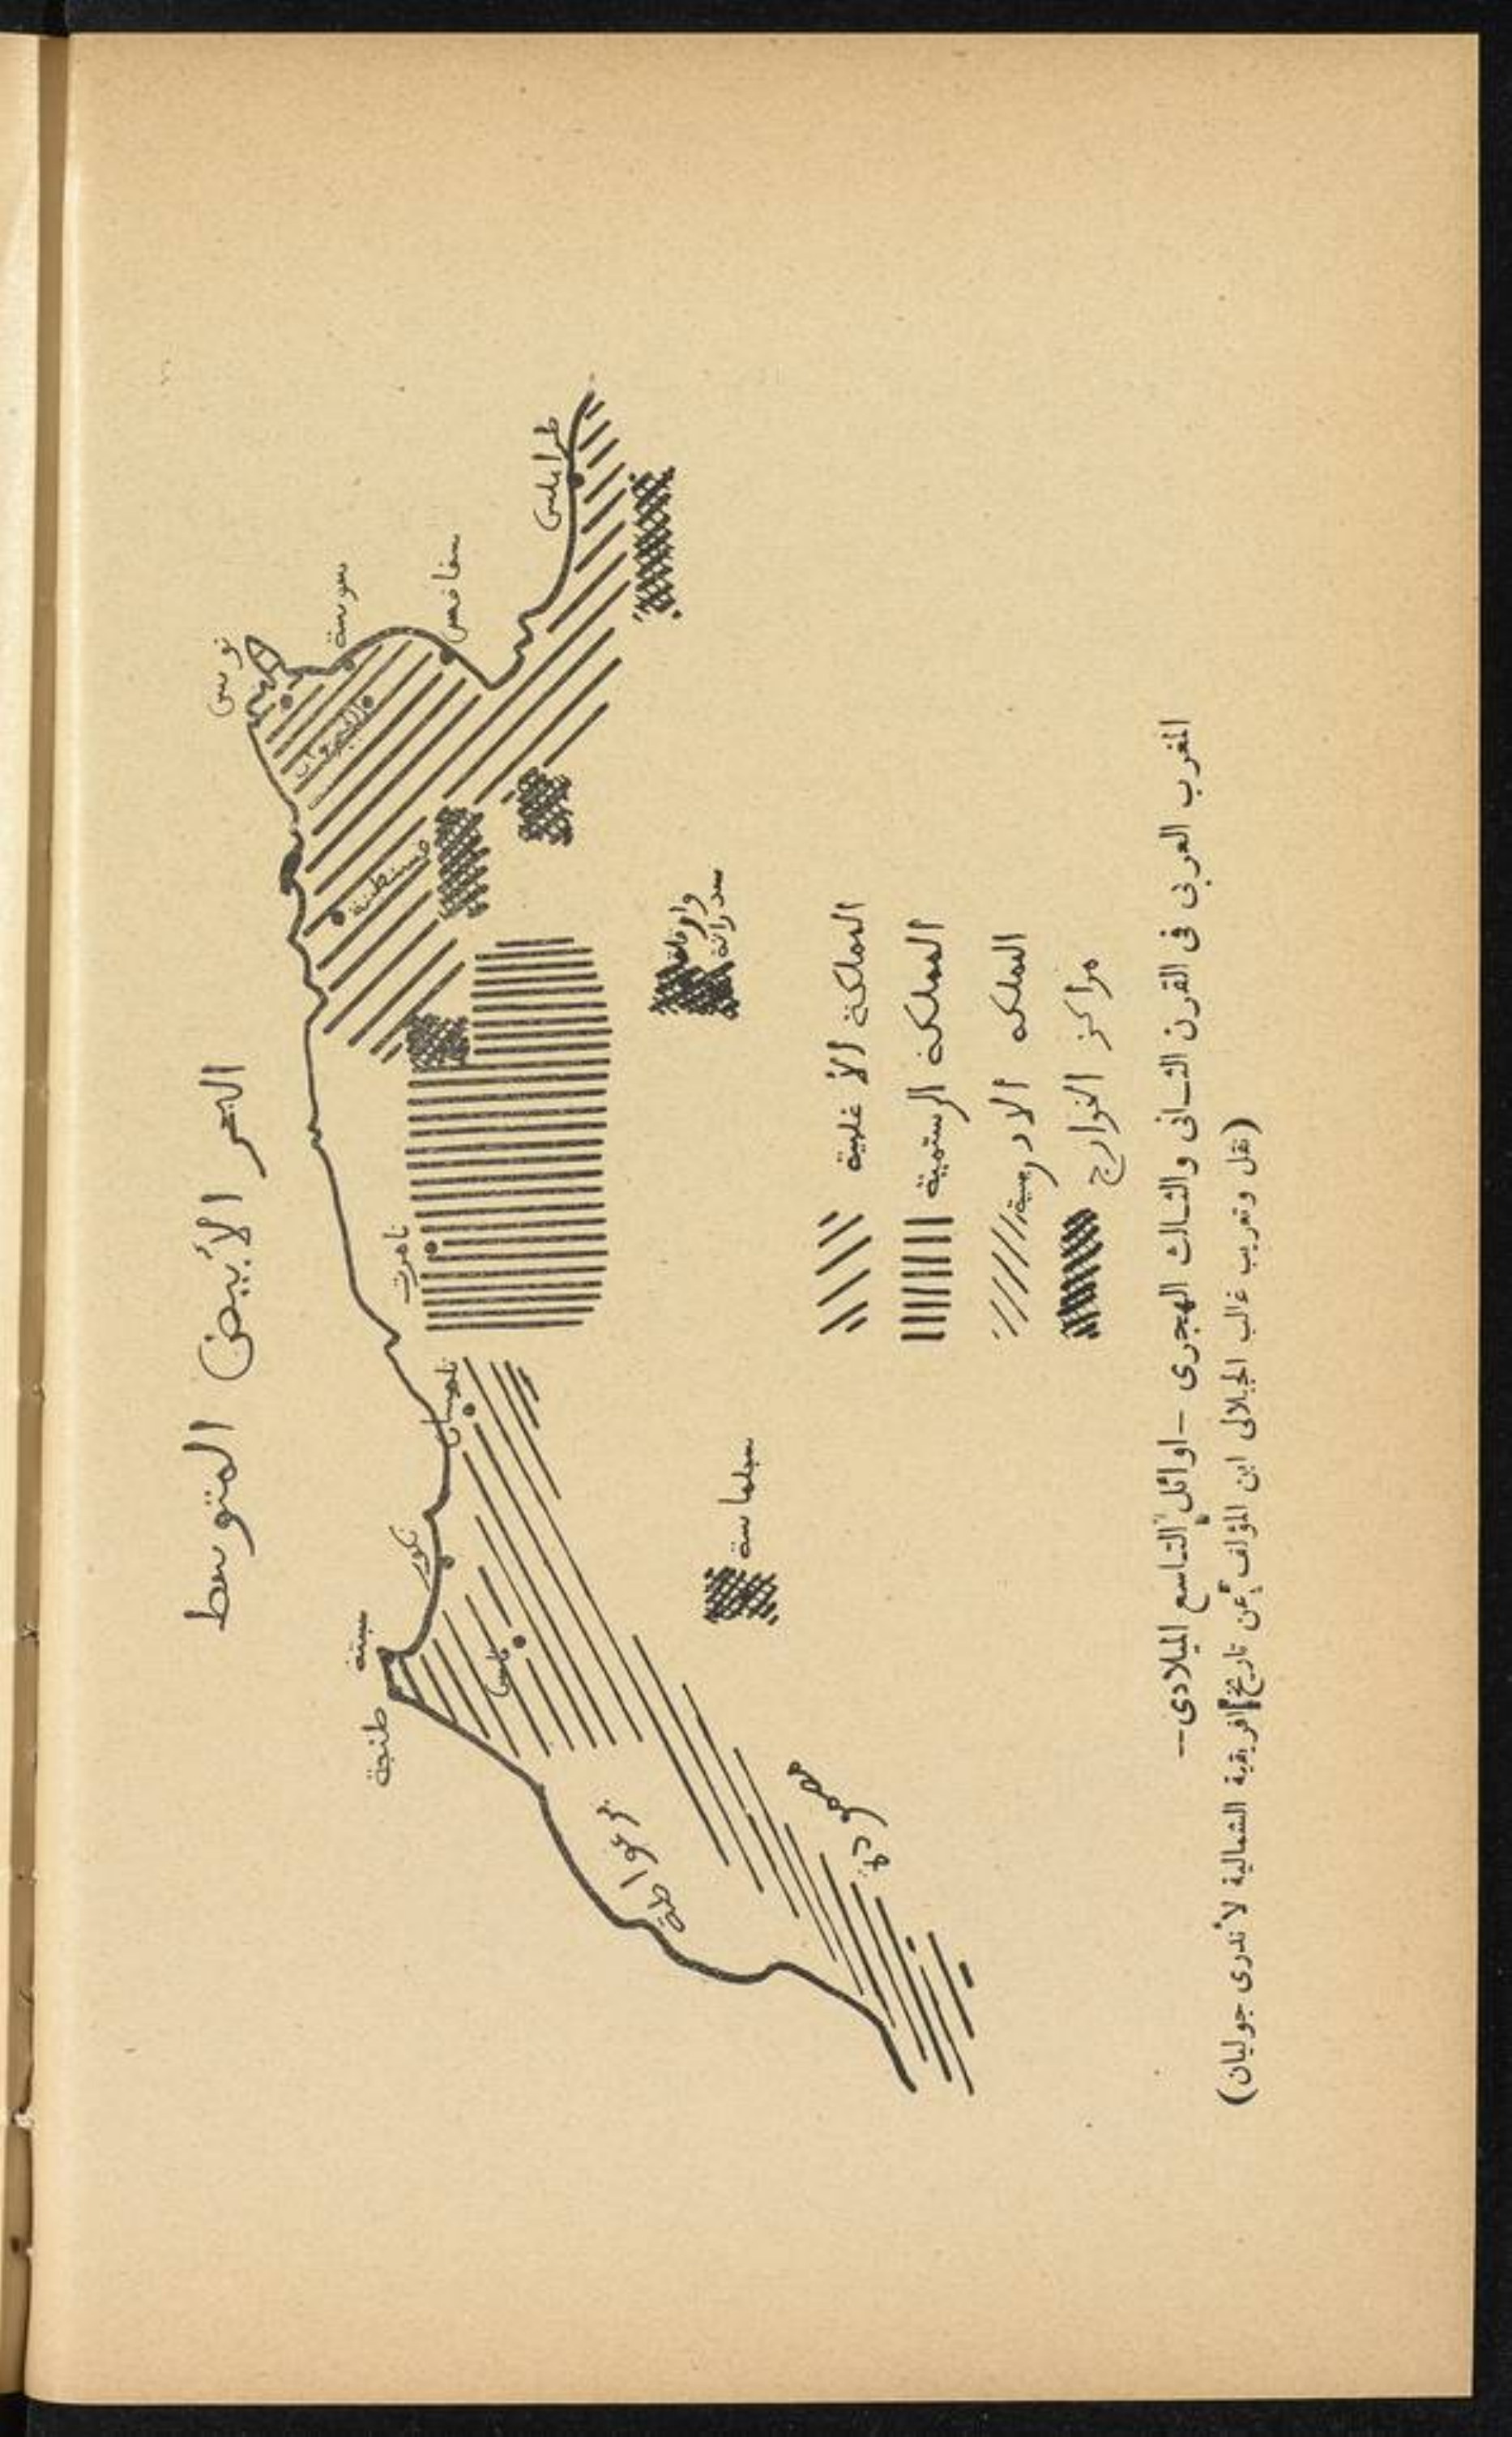 البحر الأبيض المتوسط
تونس
سوسة
القيروان
سفاقس
طرابلس
قسنطينة
تاهرت
تلمسان
نكور
سبتة
طنجة
فاس
برغواطة
مصمودة
سجلماسة
سدراتة
المملكة الأغلبية
المملكة الرستمية
المملكة الادريسية
مراكز الخوارج
المغرب العربى فى القرن الثـانى والثـالث الهجرى -اوائل التـاسع الميلادى--
(نقل وتعريب غالب الجيلالى ابن المؤلف عن تاريخ افريقية الشمالية لأندرى جوليان)